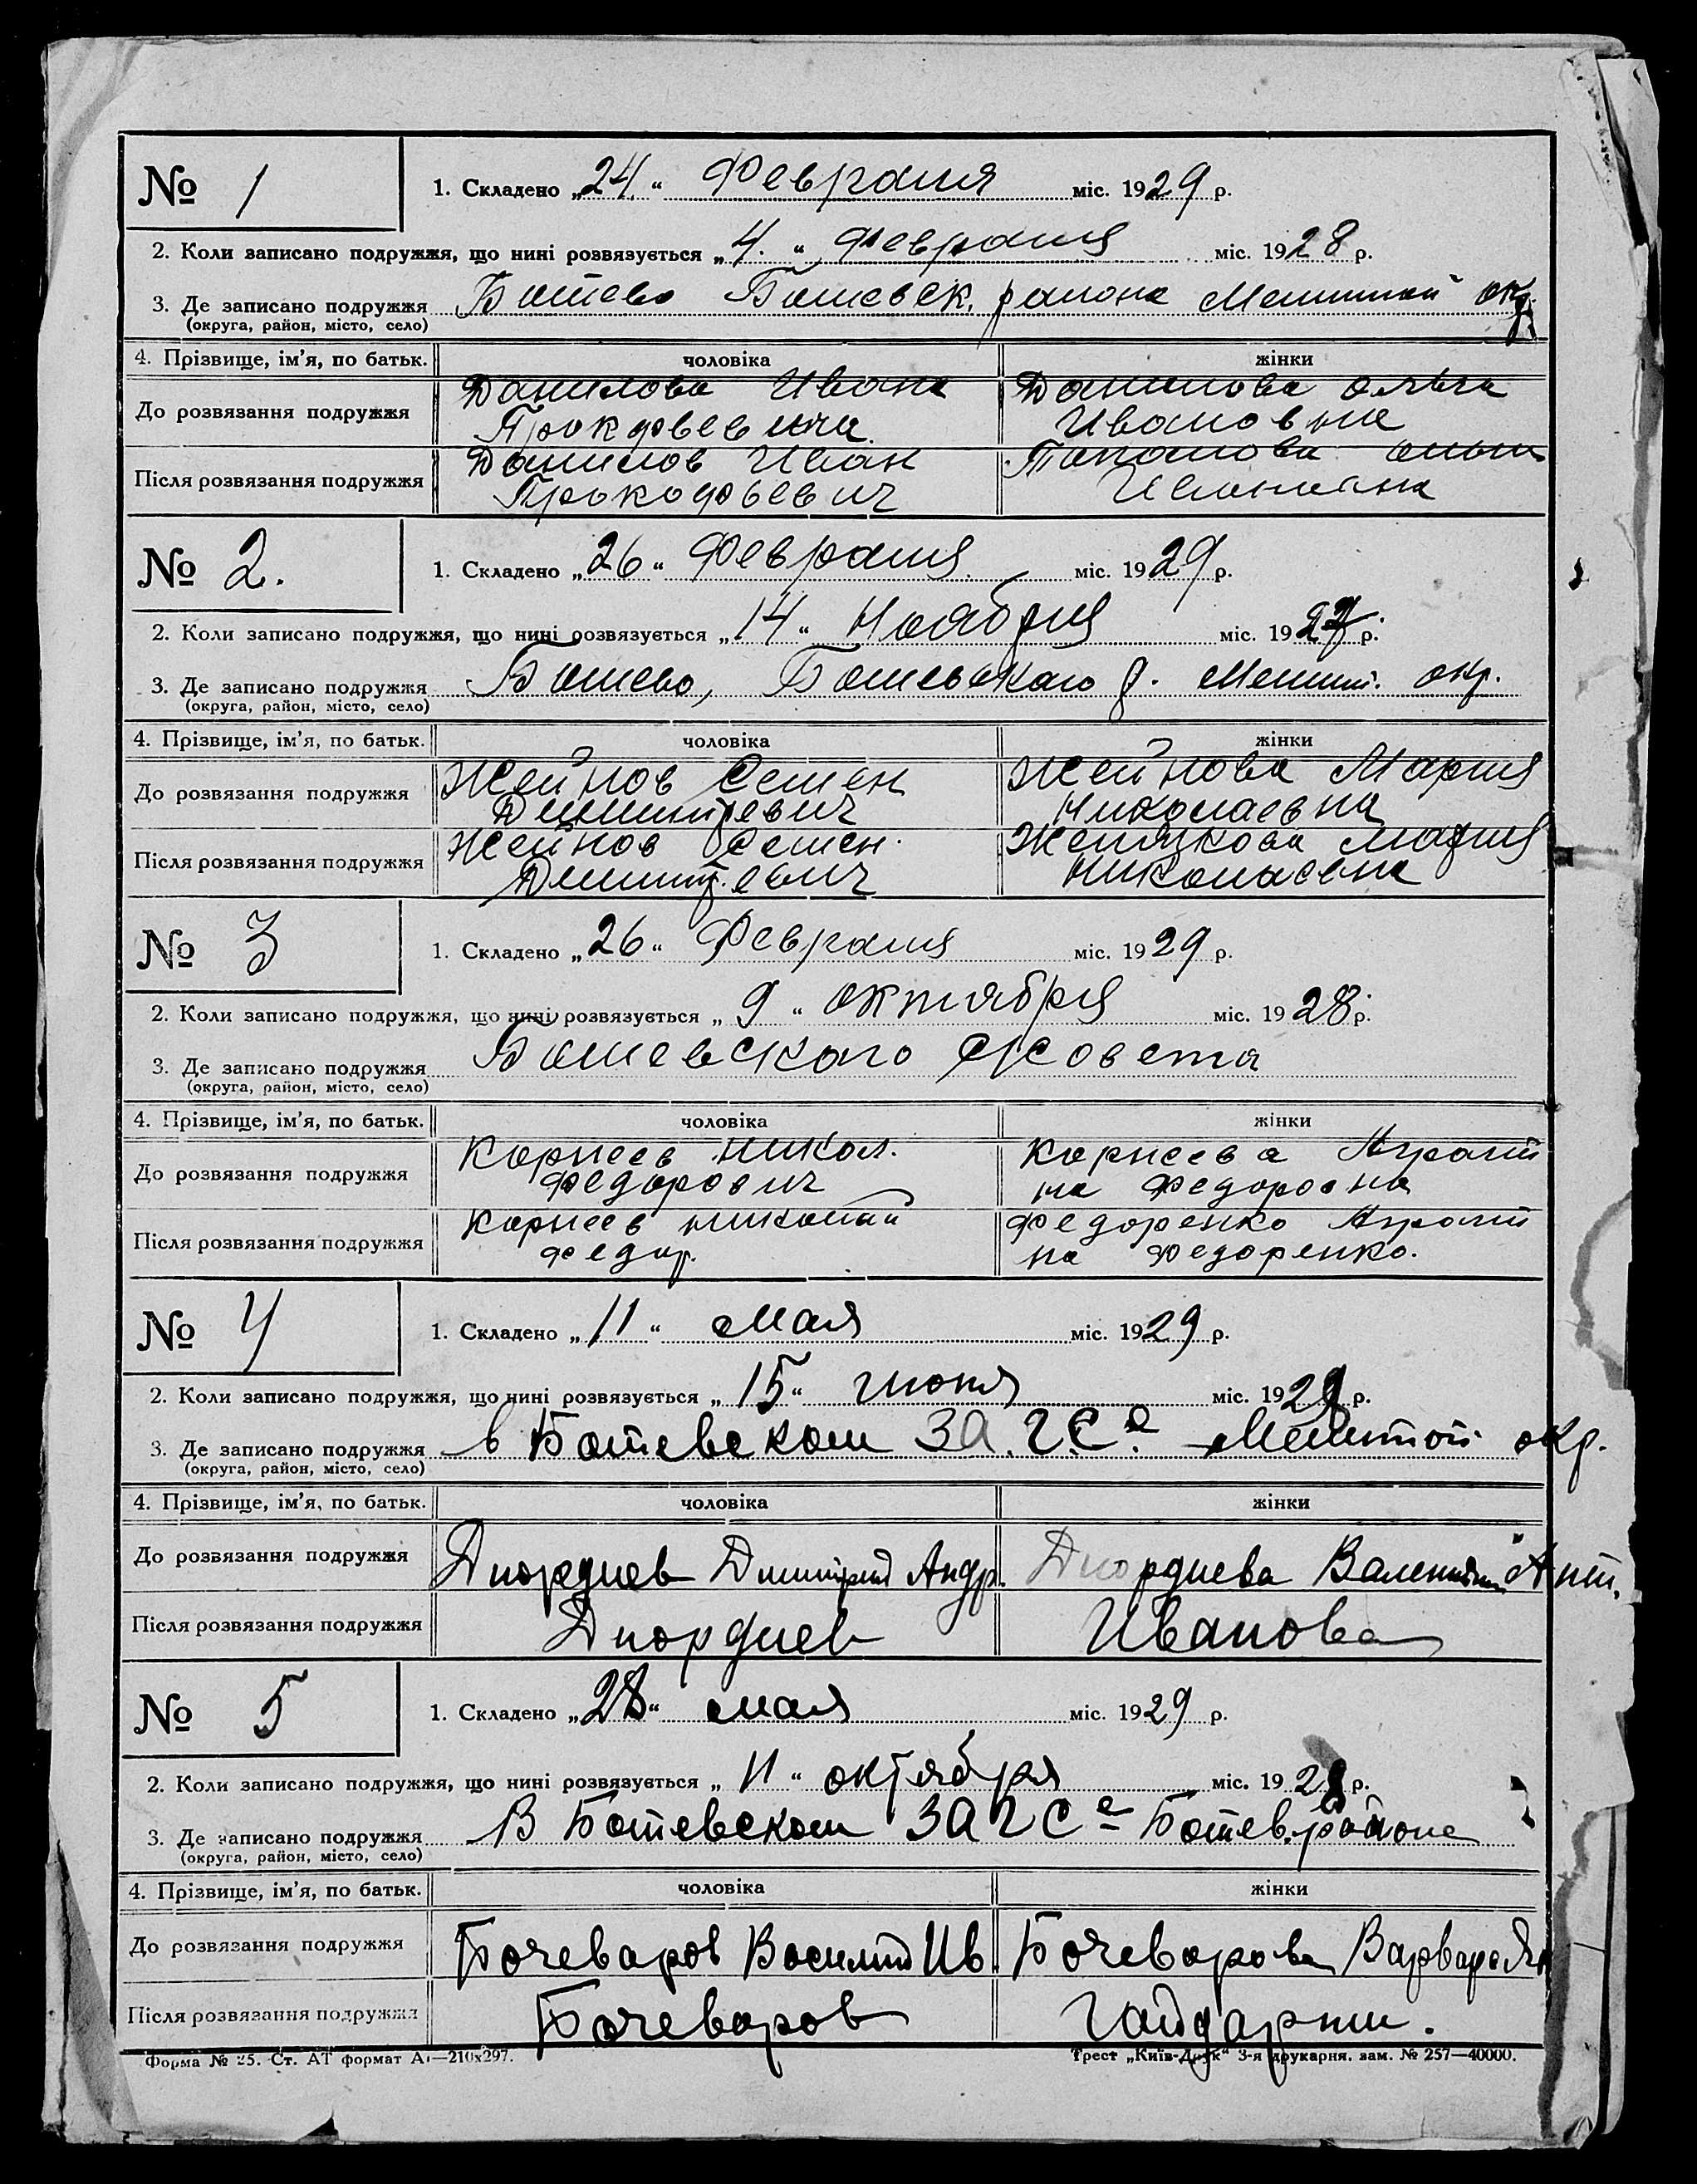 № 1
1. Складено „24“ Февраля міс. 1929 р.
2. Коли записано подружжя, що нині розвязується „4.“ Февраля міс. 1928 р.
3. Де записано подружжя Ботево Ботевск. района Мелитоп окр.
(округа, район, місто, село)
4. Прізвище, ім’я, по батьк. чоловіка жінки
До розвязання подружжя Данилова Ивана Данилова Ольга
Прокофьевича Ивановна
Після розвязання подружжя Данилов Иван
Прокофьевич Ивановна
№ 2.
1. Складено „26“ Февраля міс. 1929 р.
2. Коли записано подружжя, що нині розвязується „14“ Ноября міс. 1927 р.
3. Де записано подружжя Ботево, Ботевского р. Мелит. окр.
(округа, район, місто, село)
4. Прізвище, ім’я, по батьк. чоловіка жінки
До розвязання подружжя Жейнов Семен Жейнова Мария
Дмитриевич Николаевна
Після розвязання подружжя Жейнов Семен Мария
Дмитр.евич Николаевна
№ 3
1. Складено „26“ Февраля міс. 1929 р.
2. Коли записано подружжя, що нині розвязується „9“ октября міс. 1928 р.
3. Де записано подружжя Ботевского с/совета
(округа, район, місто, село)
4. Прізвище, ім’я, по батьк. чоловіка жінки
До розвязання подружжя Корнеев Никол. Корнеева
Федорович на Федоровна
Після розвязання подружжя Корнеев Николай Федоренко
Федор. на Федоренко.
№ 4
1. Складено „11“ мая міс. 1929 р.
2. Коли записано подружжя, що нині розвязується „15“ июня міс. 192 р.
3. Де записано подружжя в Ботевском ЗАГСе Мелитоп окр.
(округа, район, місто, село)
4. Прізвище, ім’я, по батьк. чоловіка жінки
До розвязання подружжя Диордиев Димитрий Андр. Диордиева Валентина Ант.
Після розвязання подружжя Диордиев Иванова
№ 5
1. Складено „28“ мая міс. 1929 р.
2. Коли записано подружжя, що нині розвязується „11“ октября міс. 1928 р.
3. Де записано подружжя В Ботевском ЗАГСе Ботев. района
(округа, район, місто, село)
4. Прізвище, ім’я, по батьк. чоловіка жінки
До розвязання подружжя Бочеваров Василий Ив. Бочеварова Варвара
Після розвязання подружжя Бочеваров Гайдаржи.
Форма № 25. Ст. АТ формат А4—210х297. Трест „Київ-Друк“ 3-я друкарня, зам. № 257—40000.